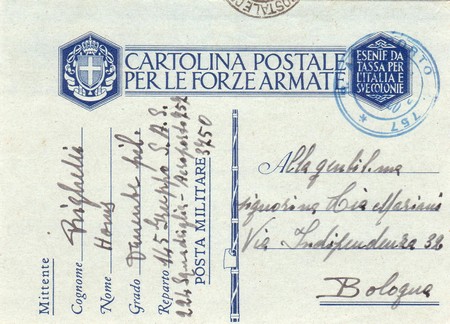 CARTOLINA POSTALE
PER LE FORZE ARMATE
ESENTE DA
TASSA PER
L'ITALIA E
SVE COLONIE
757
Mittente
Cognome
Nome
Grado
Reparto 145 Gruppo S.A.S.
224 Squadriglia - Aeroporto 252
POSTA MILITARE 3450
Alla gentil.ma
signorina Lia Mariani
Via Indipendenza 32
Bologna